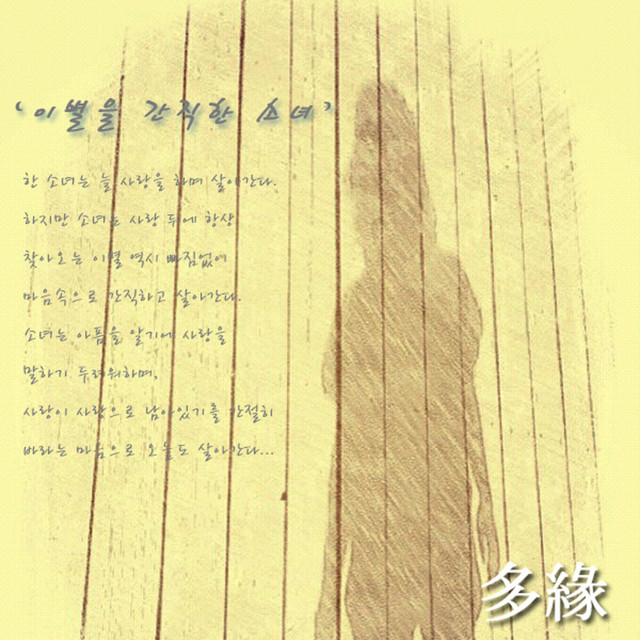 '이별을 간직한 소녀'
한 소녀는 늘 사랑을 하며 살아간다.
하지만 소녀는 사랑 뒤에 항상
찾아오는 이별 역시 빠짐없이
마음속으로 간직하고 살아간다.
소녀는 아픔을 알기에 사랑을
말하기 두려워하며,
사랑이 사랑으로 남아있기를 간절히
바라는 마음으로 오늘도 살아간다...
多緣